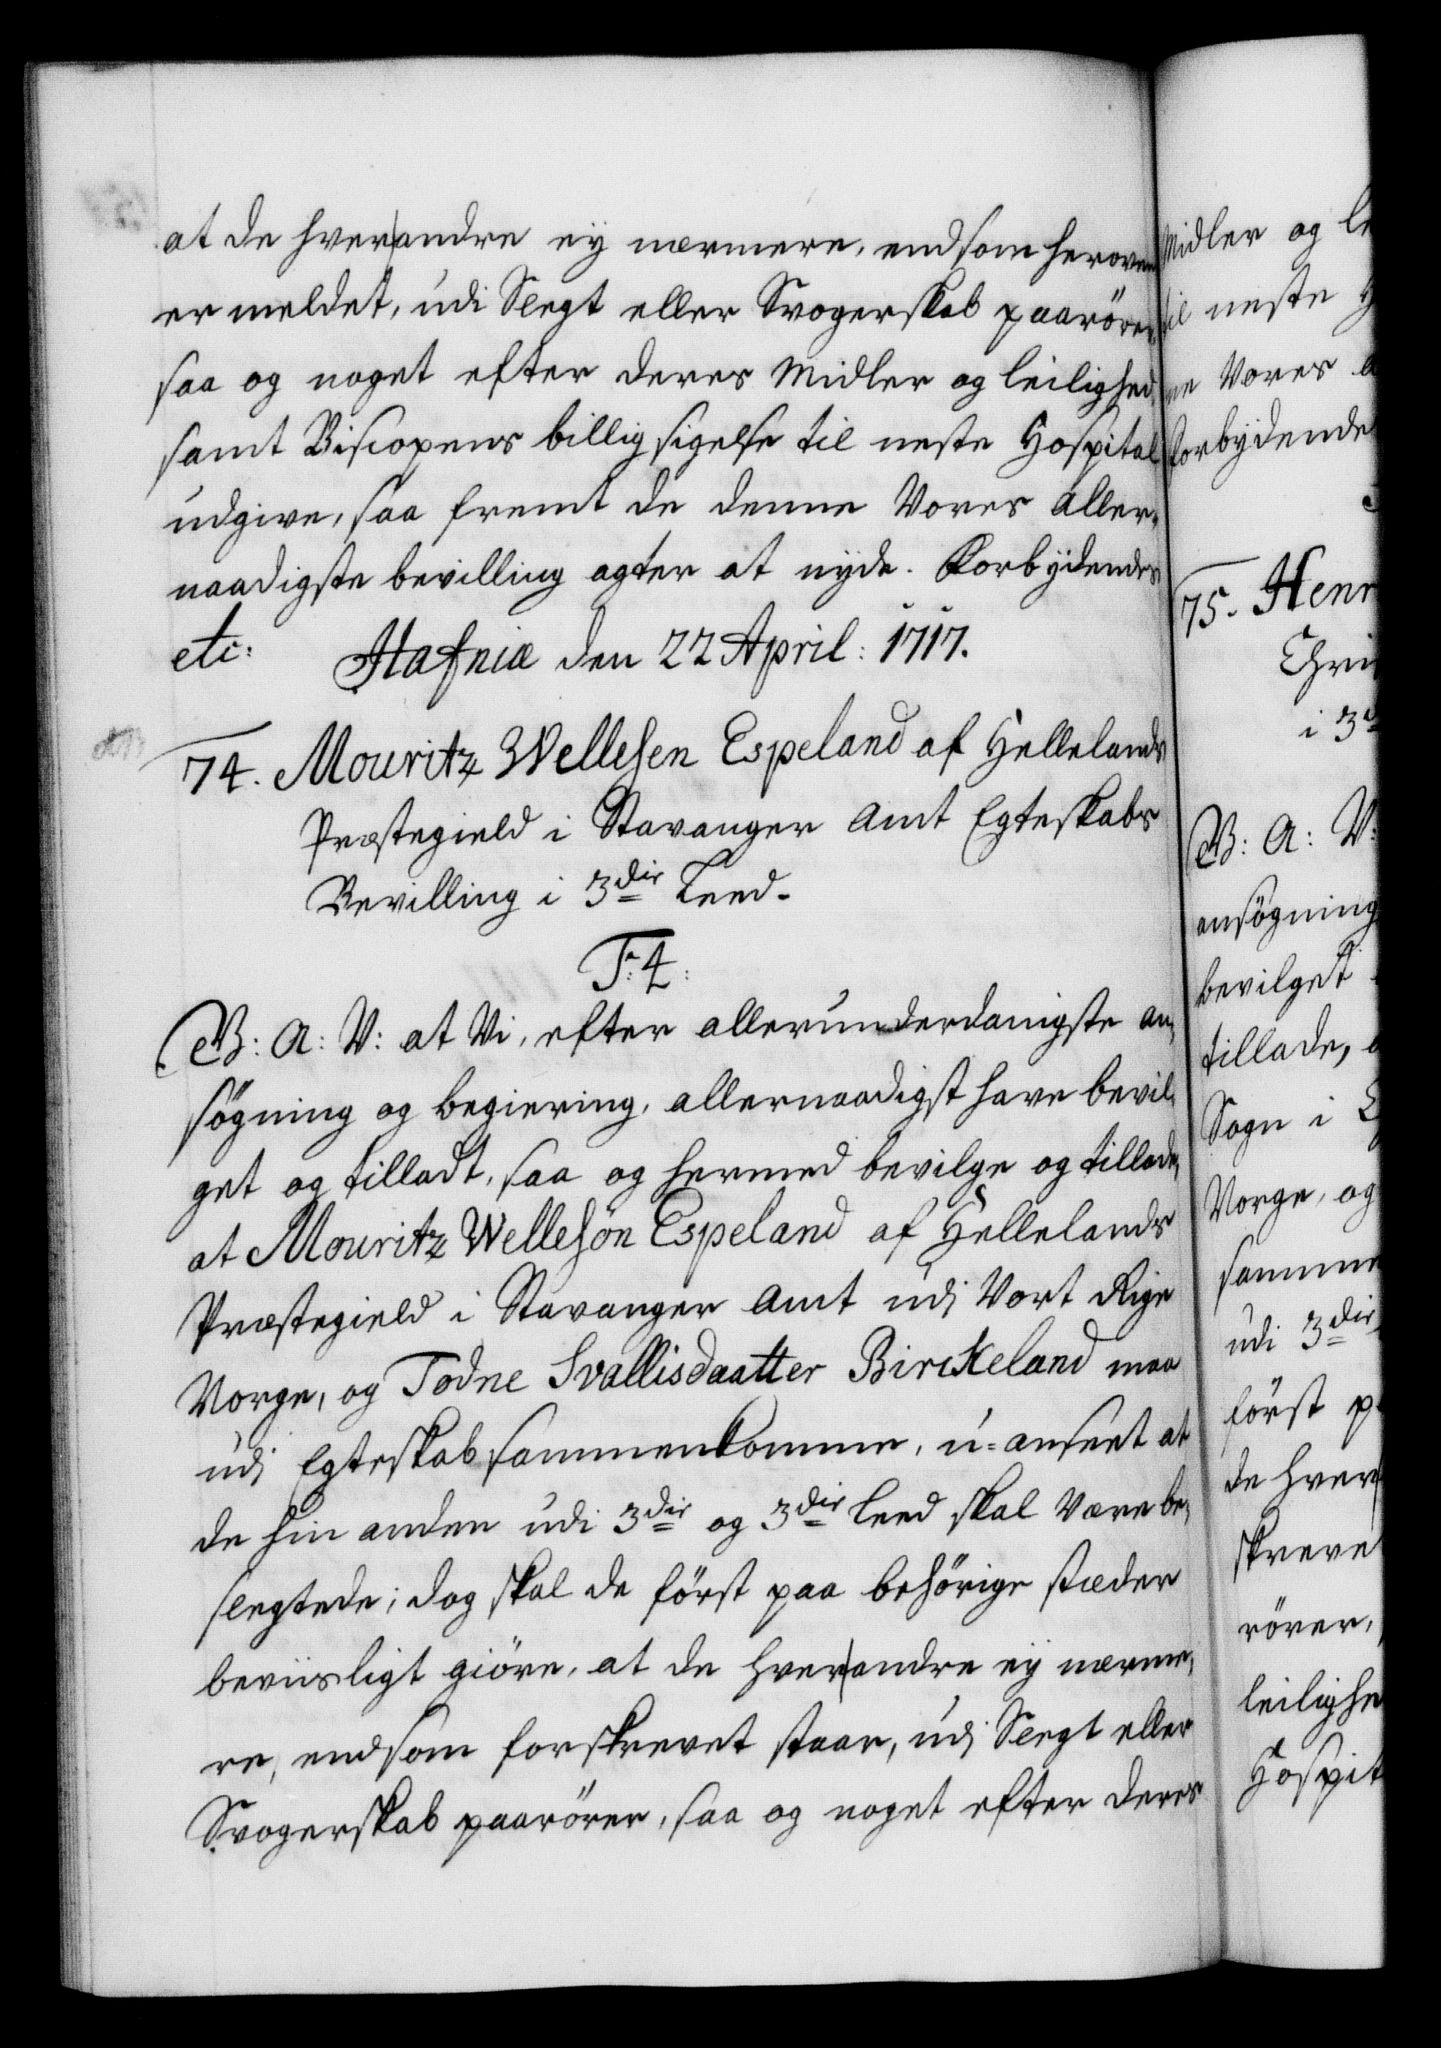 at de hverandre ey nærmere, end som heroven
er meldet, udi Slegt eller Svogerskab paarörer,
saa og noget efter deres Midler og leilighed,
samt Biscopens billig sigelse til neste Hospital
udgive, saa fremt de denne Vores aller-
naadigste bevilling agter at nyde. Forbydendes
etc: Hafniæ den 22 April: 1717.
74. Mouritz Wellesen Espeland af Hellelands
Præstegield i Stavanger Amt Egteskabs
Bevilling i 3die Leed.
F: 4:
G: A: V: at Vi, efter allerunderdanigste an-
søgning og begiering, allernaadigst have bevil-
get og tilladt, saa og hermed bevilge og tillade,
at Mouritz Wellesön Espeland af Hellelands
Præstegield i Stavanger Amt udj Vort Rige
Norge, og Todne Svallisdaatter Birckeland maa
udj Egteskab sammenkomme, u-anseet at
de hin anden udi 3die og 3die Leed skal være be-
slegtede; dog skal de först paa behörige stæder
beviisligt giöre, at de hverandre ey nærme-
re, end som forskrevet staar, udj Slegt eller
Svogerskab paarörer, saa og noget efter deres
Midler og
til neste
Vores
Forbydende
75. Henr
Chri
i 3
G: A: V:
ansøgning
bevilget
tillade,
Sogn i
Norge, og
samme
udi 3die
först
de hver
skreve
rörer,
leilighe
Hospit